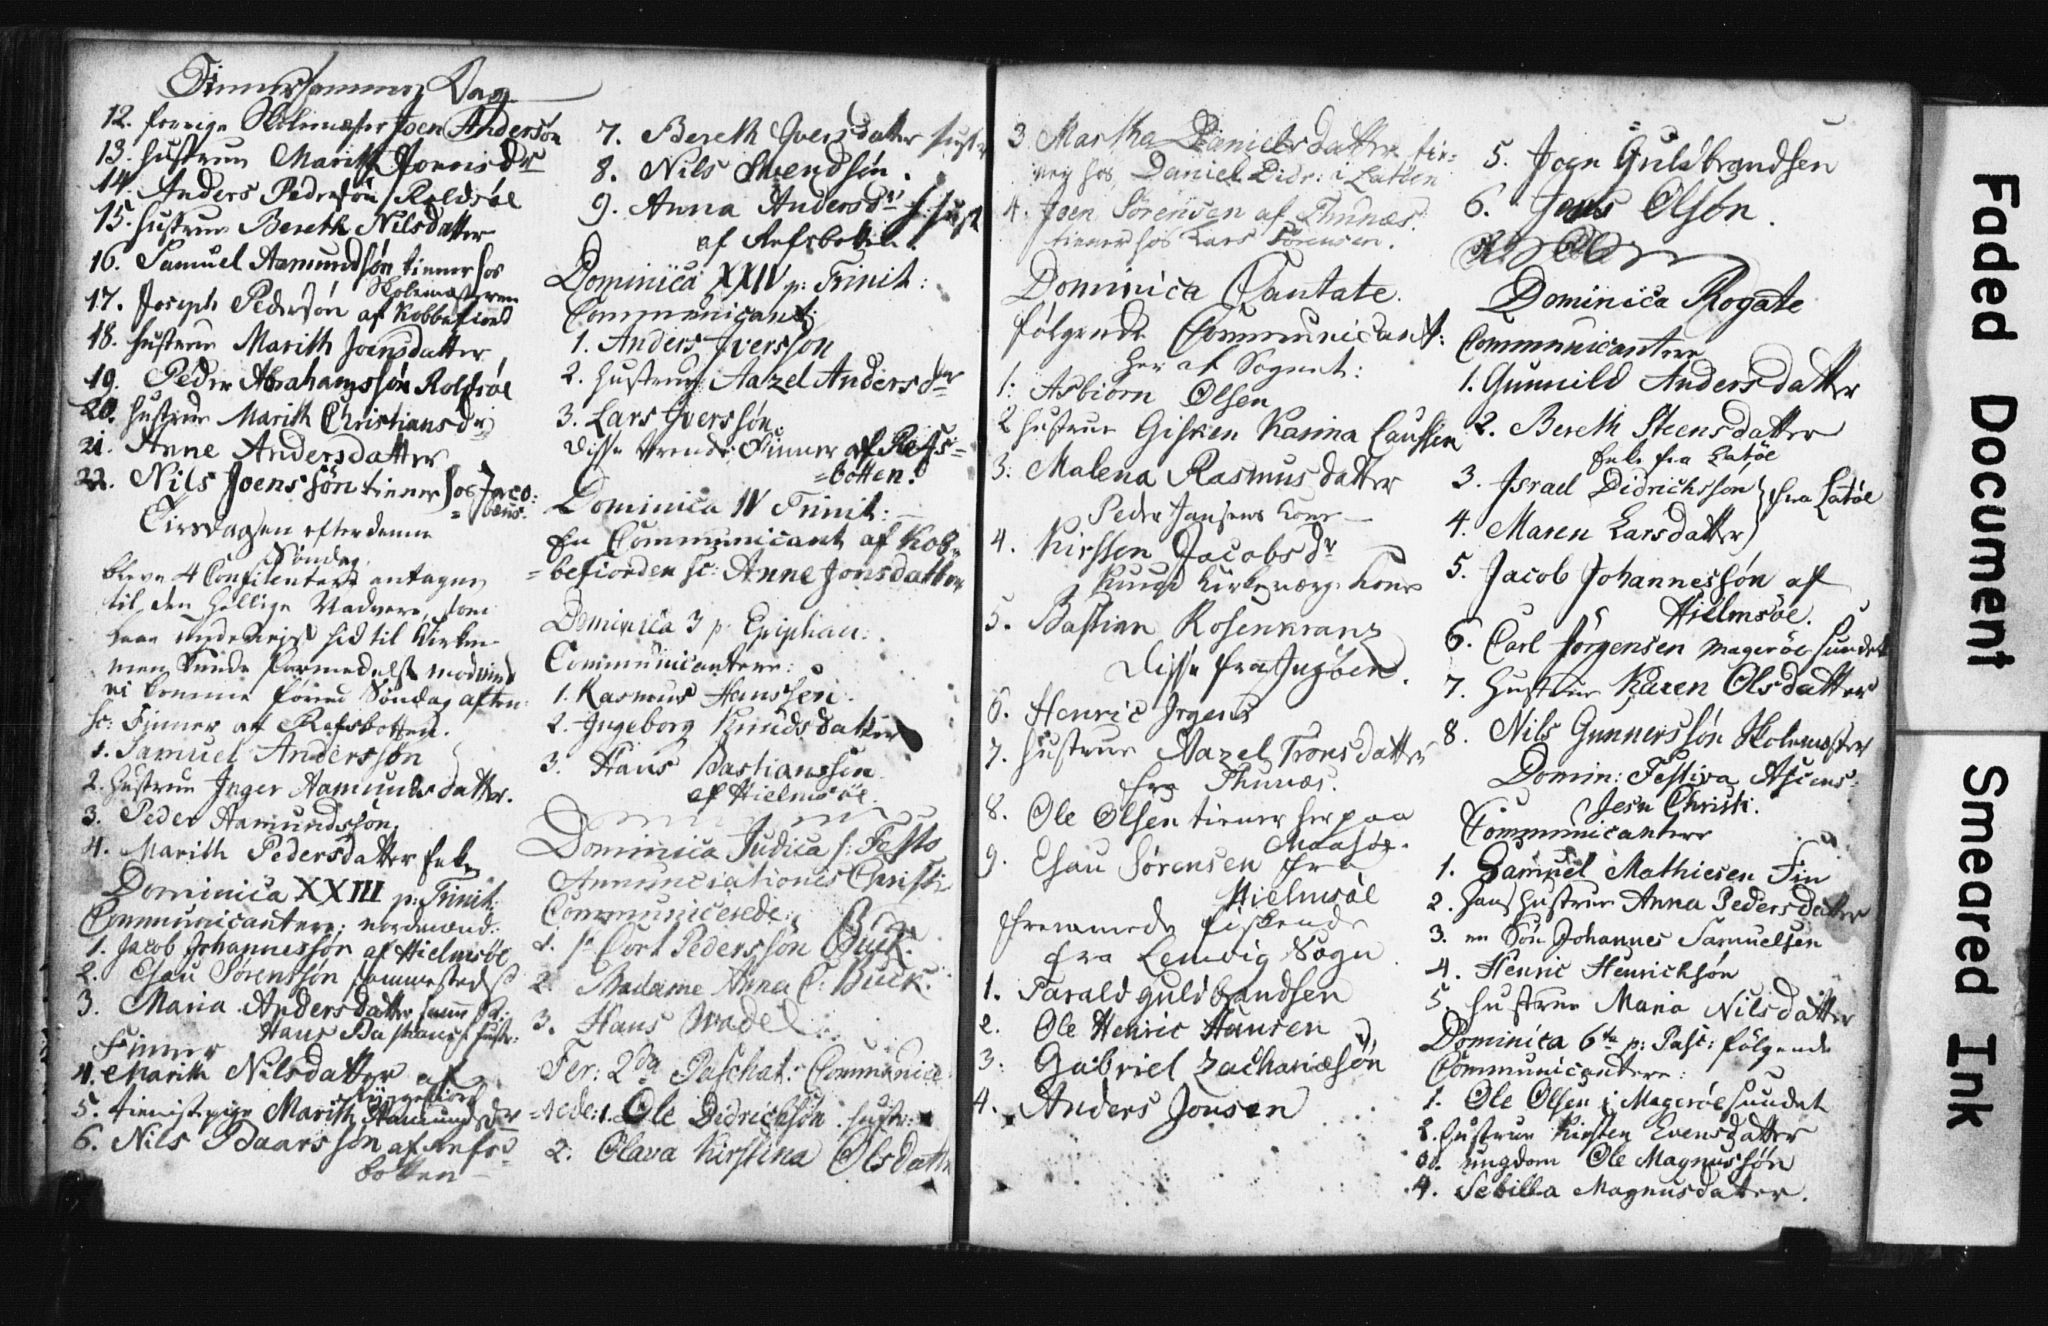 Dag
12. forrige Skolemester Joen Andersøn
13. hustrue Marith Joensdr
14. Anders Pedersøn Rolfsøe
15. hustrue Bereth Nilsdatter
16. Samuel Aamundsøn tienner hos
Skolemesteren
17. Joseph Pedersøn af Kobbefiord
18. hustrue Marith Joensdatter
19. Peder Abrahamssøn Rolfsøe
20. hustrue Marith Christiansdr
21. Anne Andersdatter
22. Nils Joenssøn tienner hos Jaco:
=bæus.
Tirsdagen efter denne
Søndag
bleve 4 Confitentere antagne
til den hellige Nadvere, som
var underveis hid til Kirken
men kunde formedelst modvind
ei komme førend Søndag aften
sc: Finner af Refsbotten.
1. Samuel Anderssøn
2. Hustrue Inger Aamundsdatter.
3. Peder Aamundssøn
4. Marith Pedersdatter Enke
Dominica XXIII p: Trinit:
Communicantere; nordmænd:
1. Jacob Johannessøn af Hielmsøe
2. Esau Sørenssøn sammesteds
3. Maria Andersdatter
Hans Bastians: hustr:
Finner
4. Marith Nilsdatter af
5. tienistepige Marith Aamundsdr
6. Nils Baarssøn af Refs=
botten
7. Bereth Iversdatter hustr
8. Nils Svendsøn.
9. Anna Andersdr hust
af Refsbotten.
Dominica XXIV p: Trinit:
Communicant:
1. Anders Iverssøn
2. Hustrue Aazel Andersdtr
3. Lars Iverssøn
disse vare Finner af Refs=
=botten.
Dominica IV Trinit:
En Communicant af Kob=
=befiorden sc: Anne Jonsdatter
Dominica 3 p: Epiphan:
Communicantere:
1. Rasmus Hanssen.
2. Ingeborg Knudsdatter
3. Hans Bastianssen
af Hielmsøe.
Dominica Judica s: Festo
Annunciationis Christi
Communicerede:
1. Hr Cort Pederssøn Buck.
2. Madame Anna C. Buck.
3. Hans Wadel
Fer: 2da Paschat: Communice
rede: 1. Ole Didrichsøn. hustr:
2. Olava Kirstina Olsdatter
3 Martha Danielsdatter tie=
ner hos Daniel Didr: i Latøen
4. Joen Sørensen af Thunæs
tiener hos Lars Sørensen.
Dominica Cantate.
følgende Communicant:
her af Sognet:
1: Asbiørn Olsen
2 hustrue Gisken Karina Caussen
3: Malena Rasmusdatter
Peder Jansens kone
4. Kirsten Jacobsdr
Knud Kirkeværg. kone
5. Bastian Rosenkranz
Disse fra Ingøen.
6. Henric Irgens
7. Hustrue Aazel Tronsdatter
fra Thunæs.
8. Ole Olsen tiener her paa
Maasøe.
9. Esau Sørensen fra
Hielmsøe
fremmede fiskende
fra Lenvig Sogn.
1. Parald Guldbrandsen
2. Ole Henric Hansen
3: Gabriel Zachariæsøn
4. Anders Jonsen
5. Joen Guldbrandsen
6. Jens Olsøn.
Dominica Rogate
Communicantere
1. Gunnild Andersdatter
2. Bereth Steensdatter
Enke fra Latøe
3. Israel Didrichssøn } fra Latøe
4. Maren Larsdatter }
5. Jacob Johannessøn af
Hielmsøe.
6. Carl Jørgensen Magerøe Sundet
7. Hustrue Karen Olsdatter
8. Nils Gunnerssøn Skolemester
Domin: Festiva Ascens:
Jesu Christi.
Communicantere
1. Samuel Mathiesen Fin
2. Hans hustrue Anna Pedersdatter
3. en Søn Johannes Samuelsen
4. Henric Henrichsøn
5. hustrue Maria Nilsdatter
Dominica 6te p: Pasc: følgende
Communicantere:
1. Ole Olsen i Magerøe sundet
2. Hustrue Kirsten Evensdatter
3. ungdom Ole Magnussøn
4. Sebilla Magnusdatter.
Faded Document
Smeared Ink